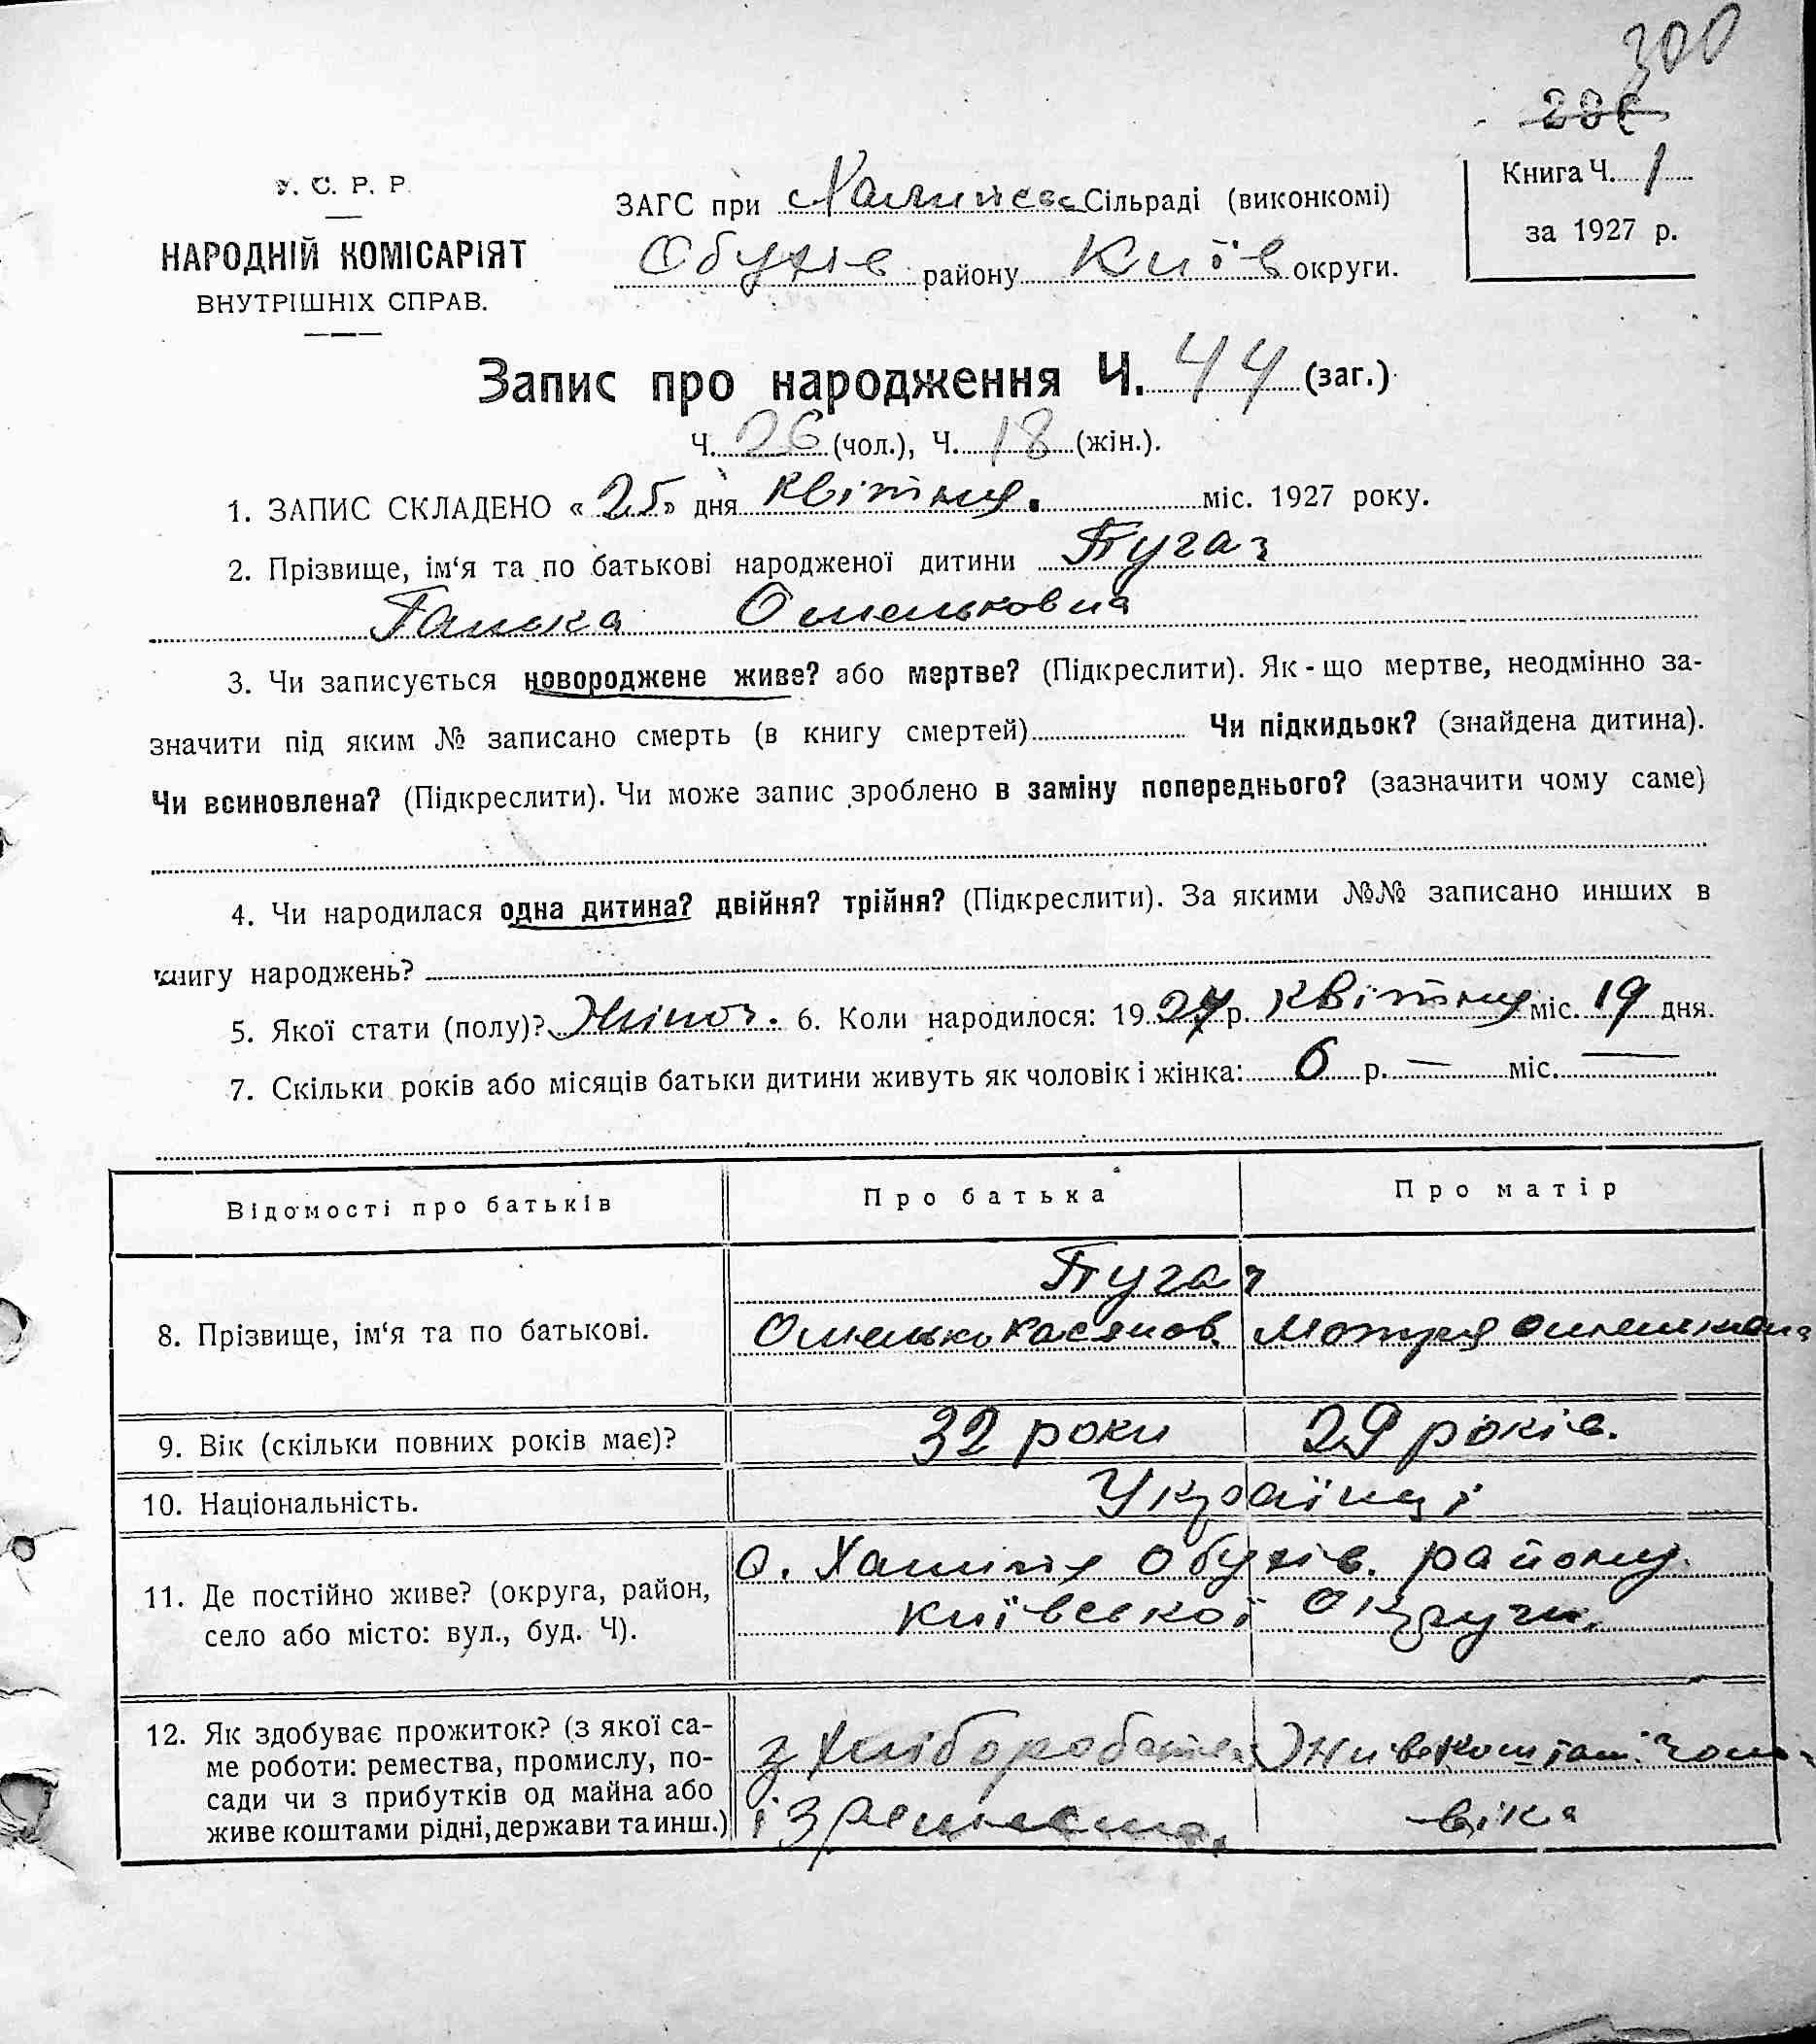 300
У. С. Р. Р.
НАРОДНІЙ КОМІСАРІЯТ
ВНУТРІШНІХ СПРАВ.
ЗАГС при Сільраді (виконкомі)
Обухів району Київ округи.
Книга Ч. 1
за 1927 р.
Запис про народження Ч. 44 (заг.)
Ч. 26 (чол.), Ч. 18 (жін.).
1. ЗАПИС СКЛАДЕНО « 25 » дня квітня. міс. 1927 року.
2. Прізвище, ім‘я та по батькові народженої дитини Пугач
Ганка Омельковна
3. Чи записується новороджене живе? або мертве? (Підкреслити). Як-що мертве, неодмінно за-
значити під яким № записано смерть (в книгу смертей) Чи підкидьок? (знайдена дитина).
Чи всиновлена? (Підкреслити). Чи може запис зроблено в заміну попереднього? (зазначити чому саме)
4. Чи народилася одна дитина? двійня? трійня? (Підкреслити). За якими №№ записано инших в
книгу народжень?
5. Якої стати (полу)? Жіноч. 6. Коли народилося: 1927 р. квітня міс. 19 дня.
7. Скільки років або місяців батьки дитини живуть як чоловік і жінка: 6 р. — міс. —
Відомості про батьків Про батька Про матір
Пугач
8. Прізвище, ім‘я та по батькові. Омелько Касянов Мотря
9. Вік (скільки повних років має)? 32 роки 29 років.
10. Національність. Українці
11. Де постійно живе? (округа, район,
село або місто: вул., буд. Ч).
с. Халипя Обухів. району
Київської Округи.
12. Як здобуває прожиток? (з якої са-
ме роботи: ремества, промислу, по-
сади чи з прибутків од майна або
живе коштами рідні, держави та инш.)
з Хліборобства
і з ремества.
Живе коштам. чоло-
віка